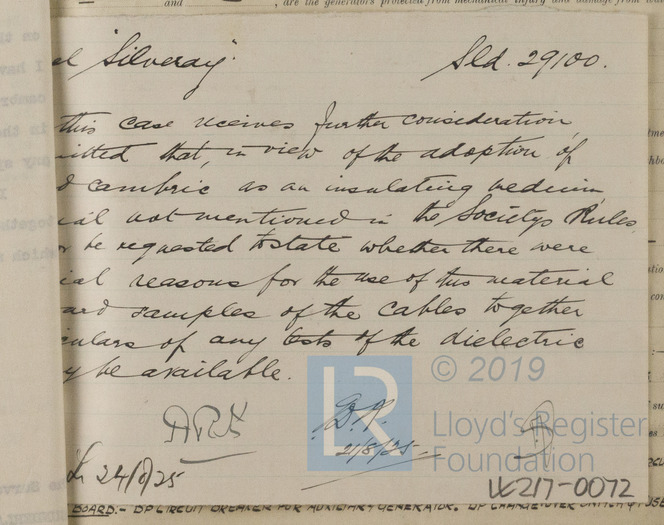 and , are the generators protected from mechanical injury and damage from
el "Silveray" Sld. 29100.
this case receives further consideration,
itted that, in view of the adoption of
d cambric as an insulating medium,
ial not mentioned in the Society's Rules,
r be requested to state whether there were
ial reasons for the use of this material
ard samples of the cables together
culars of any tests of the dielectric
y be available.
21/8/25
24/8/25
LR
© 2019
Lloyd's Register
Foundation
UK217-0072
BOARD.- DP CIRCUIT BREAKER FOR AUXILIARY GENERATOR. DP CHANGE OVER